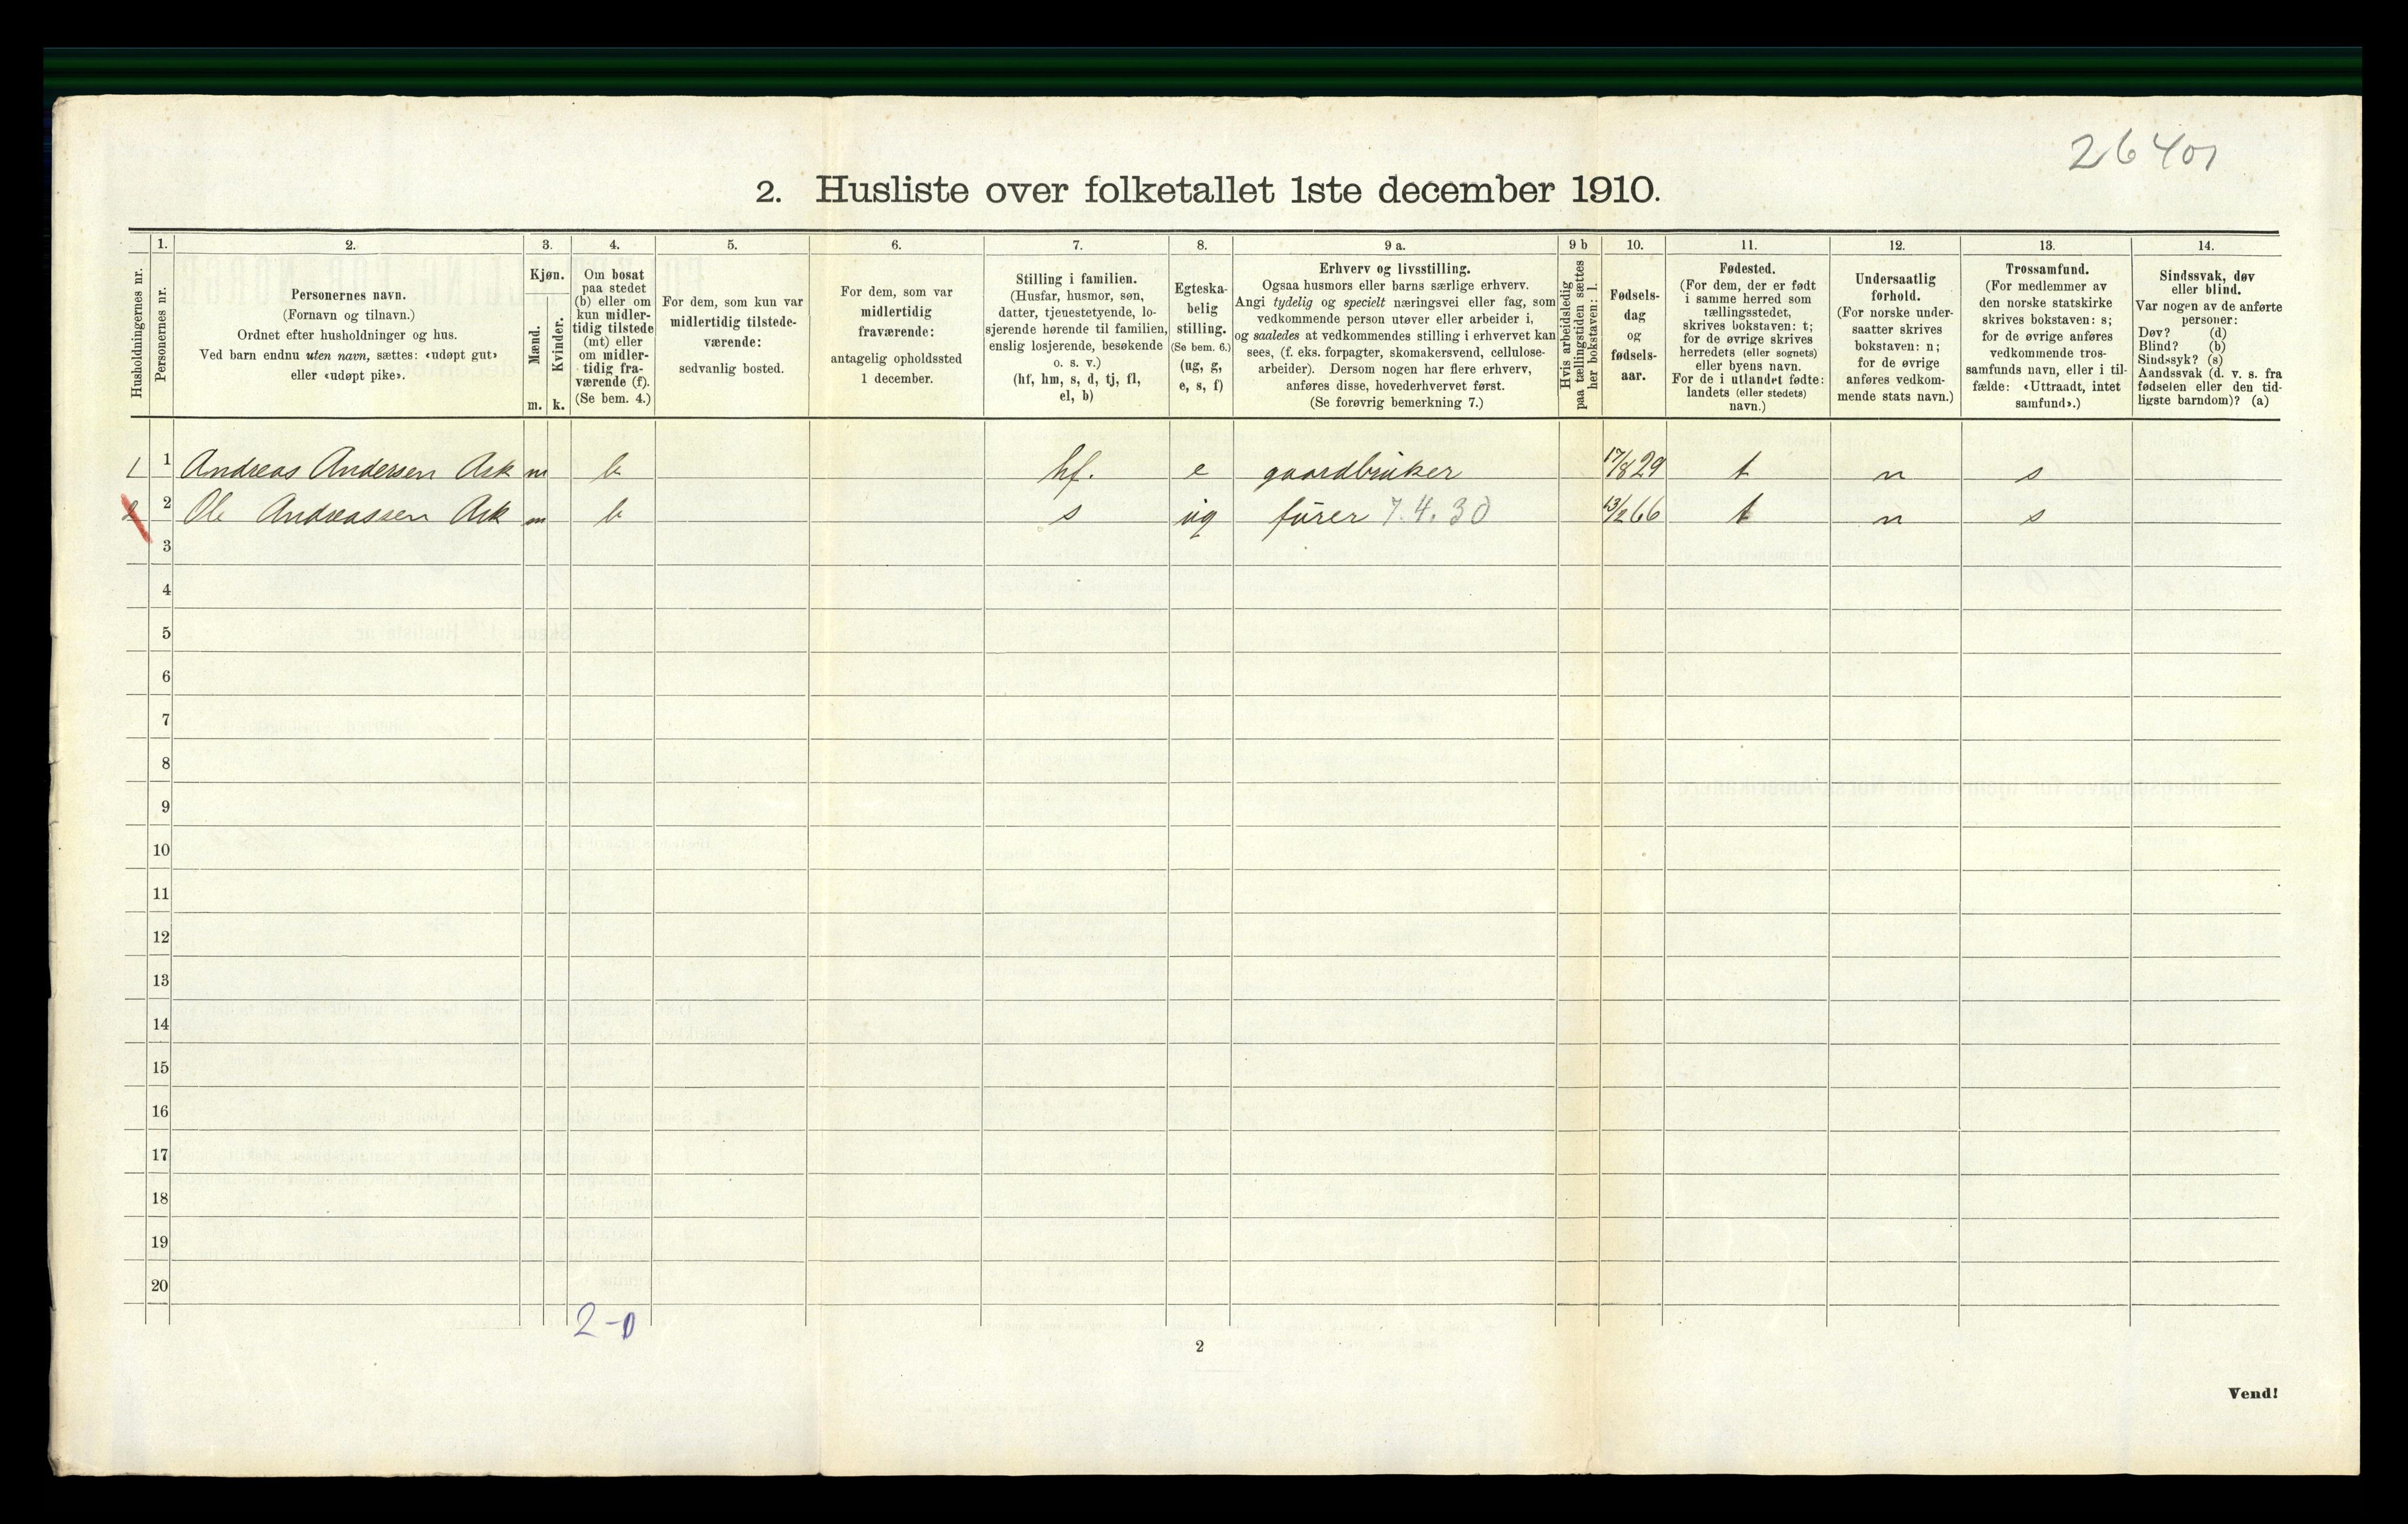 26401
2. Husliste over folketallet 1ste december 1910.
1. 2. 3. 4. 5. 6. 7. 8. 9 a. 9 b 10. 11. 12. 13. 14.
Husholdningernes nr.
Personernes nr.
Personernes navn.
(Fornavn og tilnavn.)
Ordnet efter husholdninger og hus.
Ved barn endnu uten navn, sættes: «udøpt gut»
eller «udøpt pike».
Kjøn.
Mænd.
Kvinder.
m. k.
Om bosat
paa stedet
(b) eller om
kun midler-
tidig tilstede
(mt) eller
om midler-
tidig fra-
værende (f).
(Se bem. 4.)
For dem, som kun var
midlertidig tilstede-
værende:
sedvanlig bosted.
For dem, som var
midlertidig
fraværende:
antagelig opholdssted
1 december.
Stilling i familien.
(Husfar, husmor, søn,
datter, tjenestetyende, lo-
sjerende hørende til familien,
enslig losjerende, besøkende
o. s. v.)
(hf, hm, s, d, tj, fl,
el, b)
Egteska-
belig
stilling.
(Se bem. 6.)
(ug, g,
e, s, f)
Erhverv og livsstilling.
Ogsaa husmors eller barns særlige erhverv.
Angi tydelig og specielt næringsvei eller fag, som
vedkommende person utøver eller arbeider i,
og saaledes at vedkommendes stilling i erhvervet kan
sees, (f. eks. forpagter, skomakersvend, cellulose-
arbeider). Dersom nogen har flere erhverv,
anføres disse, hovederhvervet først.
(Se forøvrig bemerkning 7.)
Hvis arbeidsledig
paa tællingstiden sættes
her bokstaven: l.
Fødsels-
dag
og
fødsels-
aar.
Fødested.
(For dem, der er født
i samme herred som
tællingsstedet,
skrives bokstaven: t;
for de øvrige skrives
herredets (eller sognets)
eller byens navn.
For de i utlandet fødte:
landets (eller stedets)
navn.)
Undersaatlig
forhold.
(For norske under-
saatter skrives
bokstaven: n;
for de øvrige
anføres vedkom-
mende stats navn.)
Trossamfund.
(For medlemmer av
den norske statskirke
skrives bokstaven: s;
for de øvrige anføres
vedkommende tros-
samfunds navn, eller i til-
fælde: «Uttraadt, intet
samfund».)
Sindssvak, døv
eller blind.
Var nogen av de anførte
personer:
Døv? (d)
Blind? (b)
Sindssyk? (s)
Aandssvak (d. v. s. fra
fødselen eller den tid-
ligste barndom)? (a)
1 1 Andreas Andersen Ask m b hf. e gaardbruker 17/8 29 t n s
2 2 Ole Andreassen Ask m b s ug fører 7.4.30 13/2 66 t n s
3
4
5
6
7
8
9
10
11
12
13
14
15
16
17
18
19
20
2-0
2
Vend!